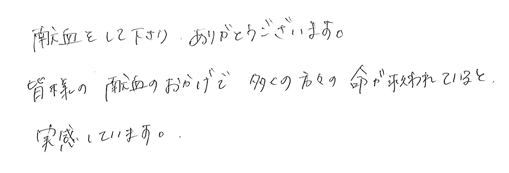 献血をして下さり ありがとうございます。
皆様の 献血のおかげで 多くの方々の 命が救われていると、
実感しています。